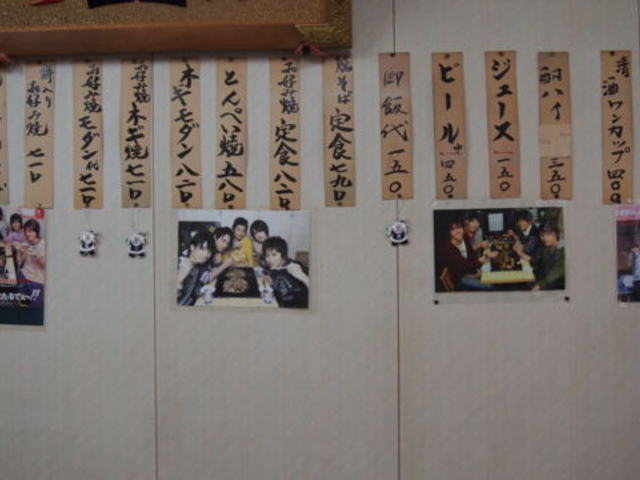 清酒ワンカップ 四〇〇
酎ハイ 三五〇
ジュース 一五〇
ビール 中 四五〇
御飯代 一五〇
焼そば 定食 七九〇
お好み焼 定食 八二〇
とんぺい焼 五八〇
ネギモダン 八二〇
お好み焼 ネギ焼 七一〇
お好み焼 モダン 七一〇
お好み焼 七一〇